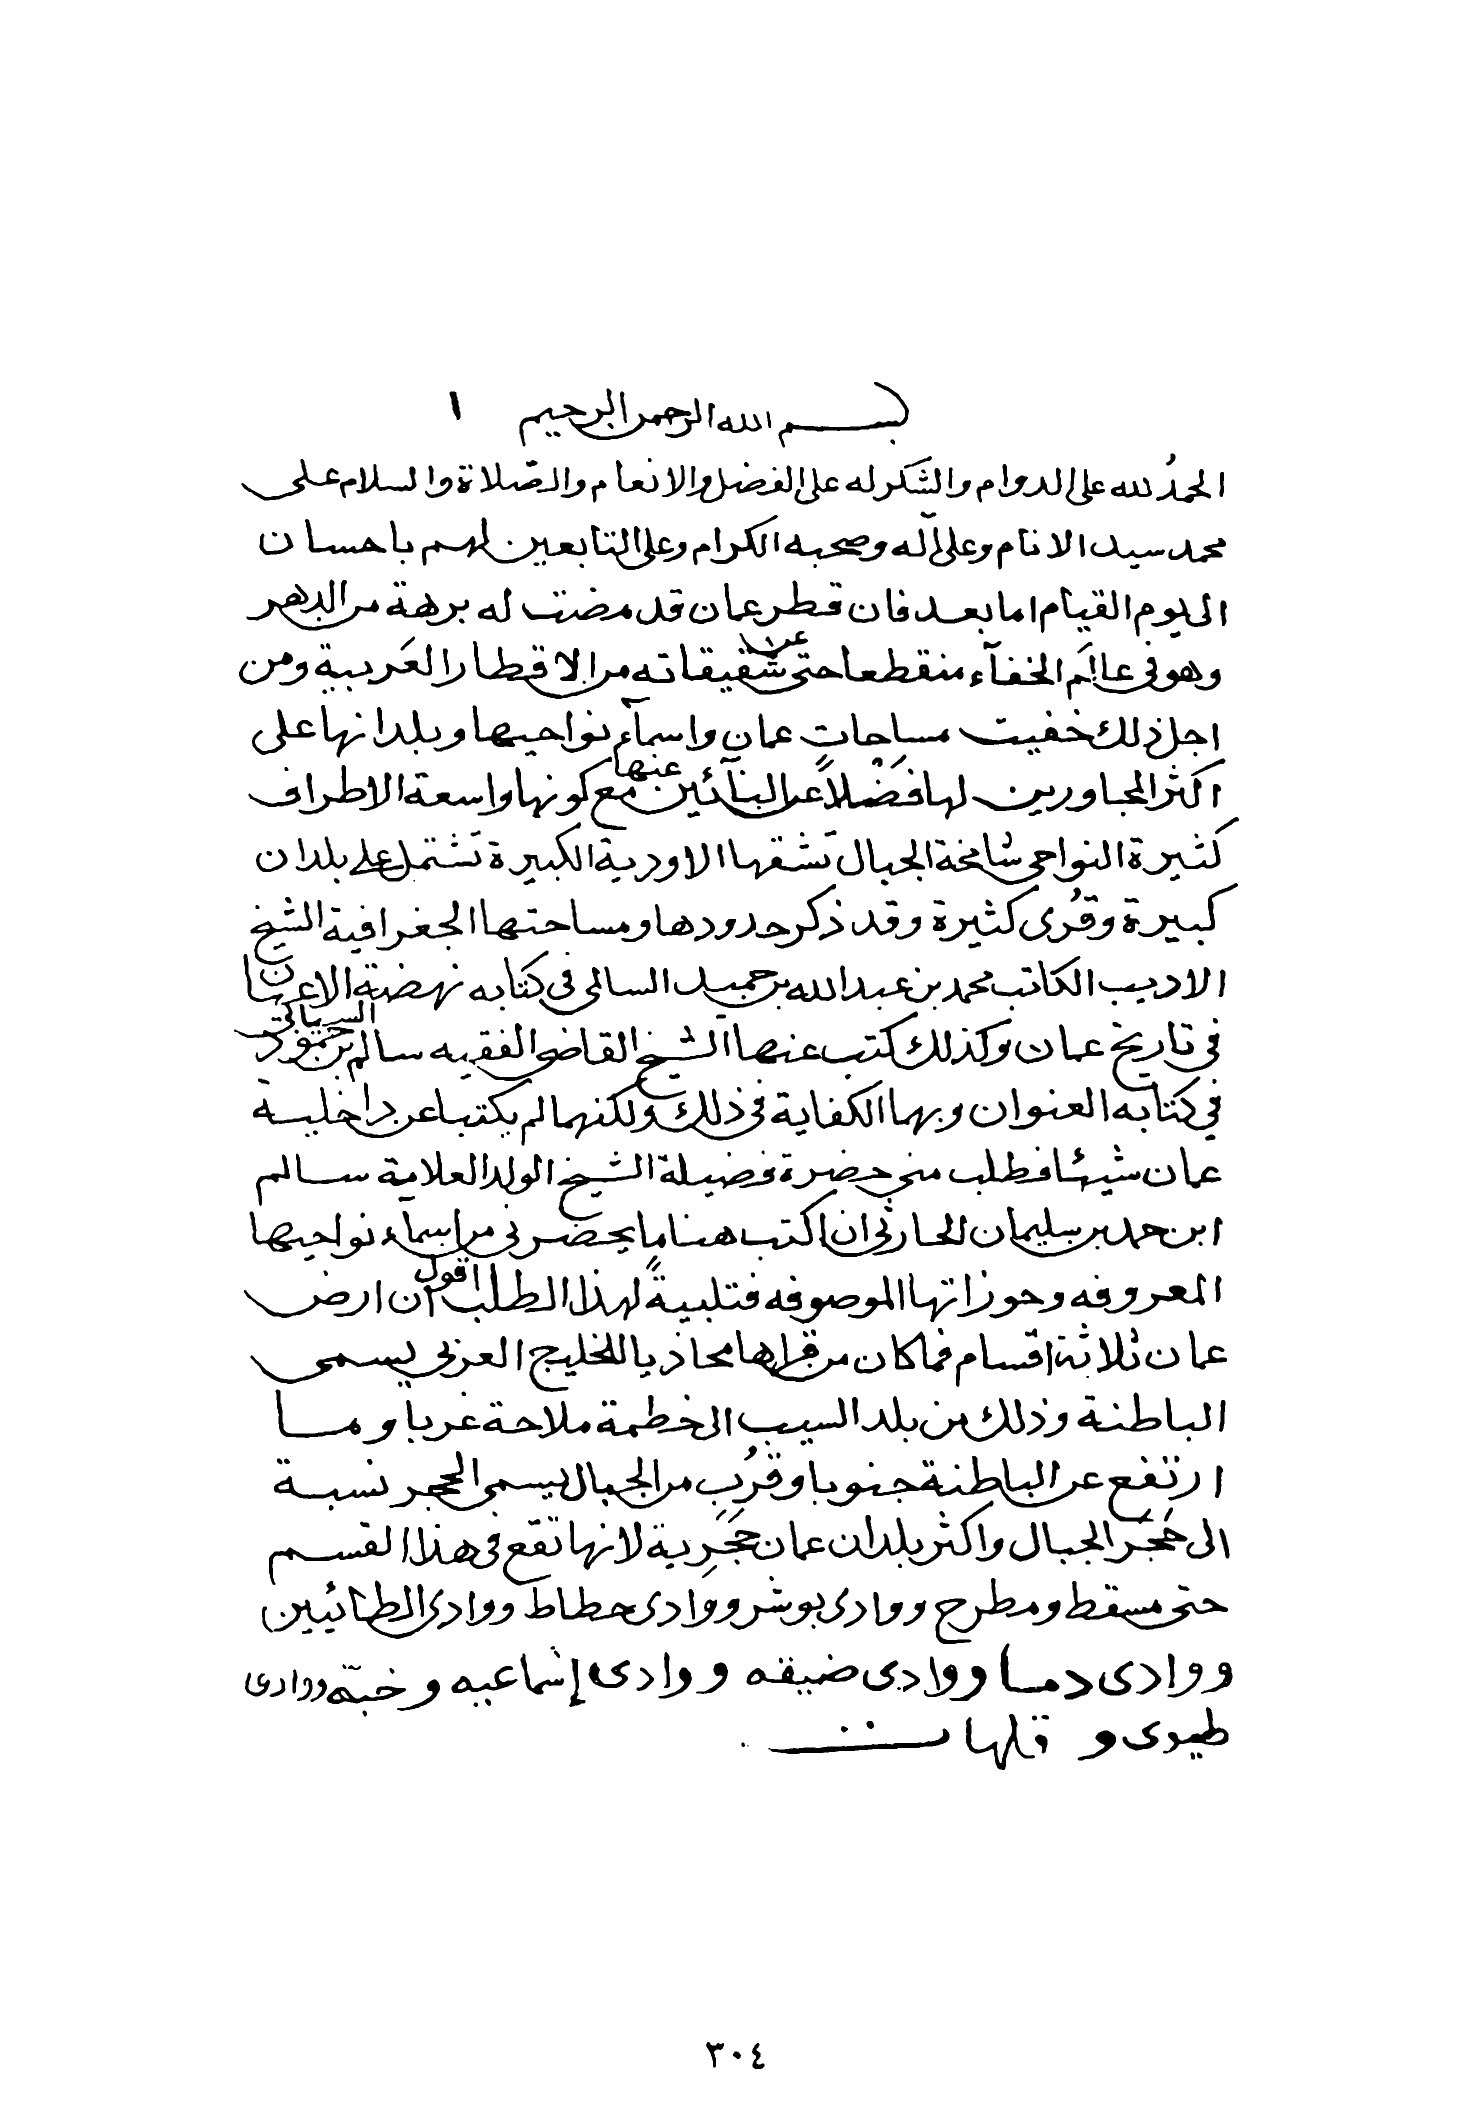 بسم الله الرحمن الرحيم ١
الحمدُ لله على الدوام والشكر له على الفضل والانعام والصّلاة والسلام على
محمد سيد الانام وعلى آله وصحبه الكرام وعلى التابعين لهم باحسان
الى يوم القيام اما بعد فان قطر عمان قد مضت له برهة من الدهر
وهو في عالَم الخفآء منقطعا حتى عن شقيقاته من الاقطار العَربية ومن
اجل ذلك خفيت مساحات عمان واسمآء نواحيها وبلدانها على
اكثر المجاورين لها فَضْلاً عن النآئين عنها مع كونها واسعة الاطراف
كثيرة النواحى شامخة الجبال تشقها الاودية الكبيرة تشتمل على بلدان
كبيرة وقُرى كثيرة وقد ذكر حدودها ومساحتها الجغرافية الشيخ
الاديب الكاتب محمد بن عبدالله بن حميد السالمى في كتابه نهضة الاعيان
في تاريخ عمان وكذلك كتب عنها الشيخ القاضي الفقيه سالم بن حمود السيابي
في كتابه العنوان وبهما الكفاية في ذلك ولكنهما لم يكتبا عن داخلية
عمان شيئا فطلب مني حضرة فضيلة الشيخ الولد العلامة سالم
ابن حمد بن سليمان الحارثي ان اكتب هنا ما يحضرني من اسمآء نواحيها
المعروفه وحوزاتها الموصوفه فتلبيةً لهذا الطلب اقول ان ارض
عمان ثلاثة اقسام فما كان من قراها محاذيا للخليج العربي يسمى
الباطنة وذلك من بلد السيب الى خطمة ملاحة غربا وما
ارتفع عن الباطنة جنوبا وقرُب من الجبال يسمى الحجر نسبة
الى حَجَر الجبال واكثر بلدان عمان حَجَرِية لانها تقع في هذا القسم
حتى مسقط ومطرح ووادى بوشر ووادى حطاط ووادى الطائيين
ووادى دما ووادى ضيقه ووادى إسماعيه وخبّه ووادى
طيوى وقلهات
٣٠٤